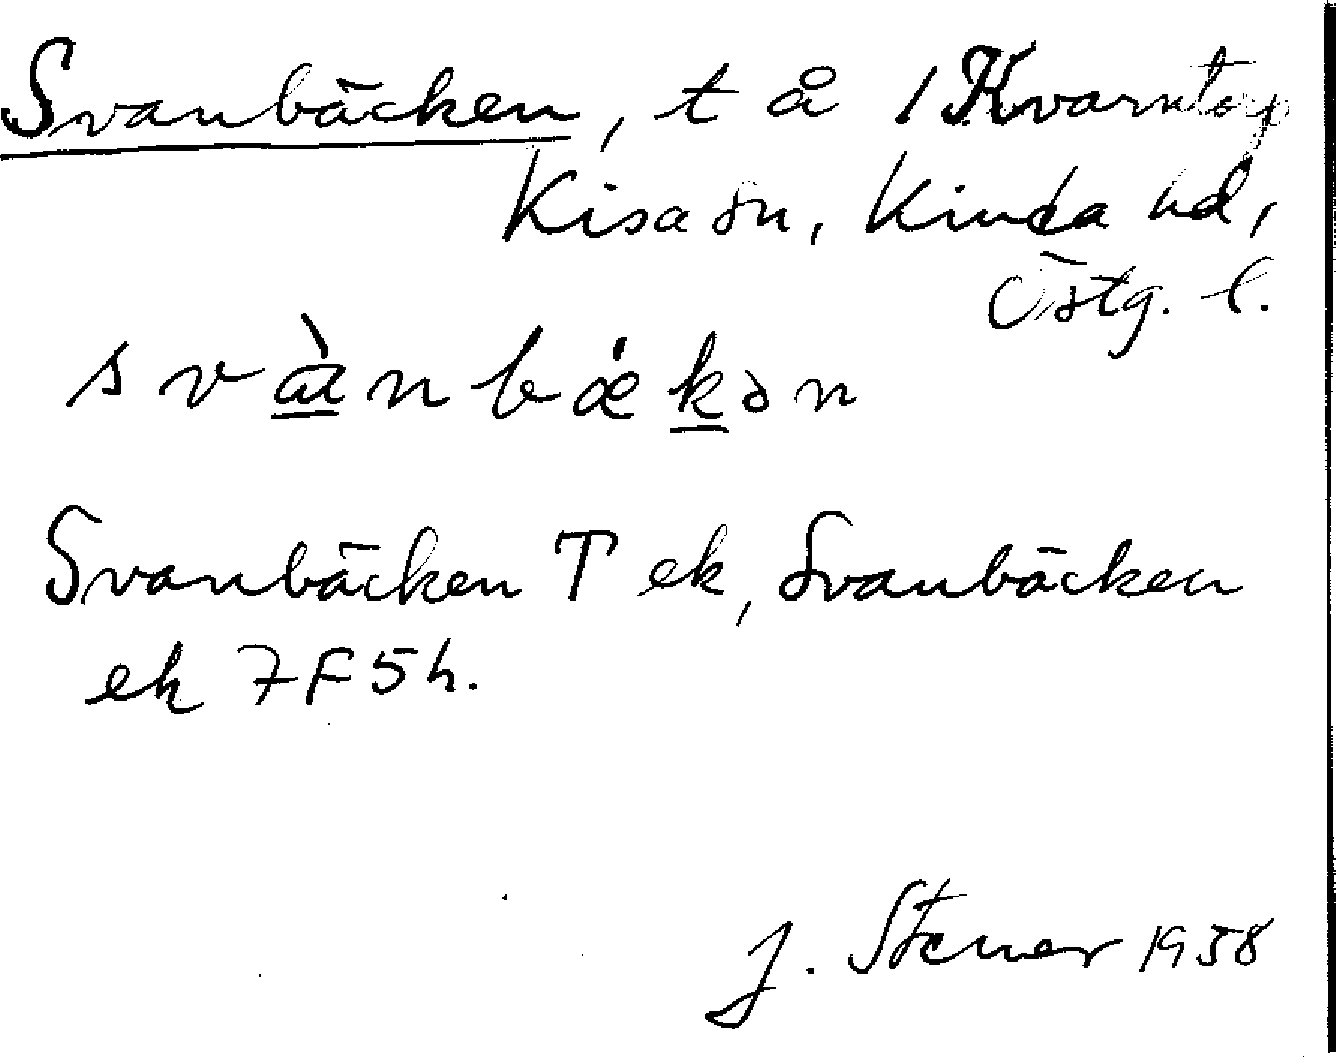 Svanbäcken, t å 1 Kvarntorp
Kisa sn, Kinda hd,
Östg. l.
svànbǽkən
Svanbäcken T ek, Svanbäcken
ek 7F5h.
J. Stener 1958